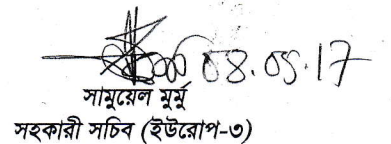 08.05.17
সামুয়েল মুর্মূ
সহকারী সচিব (ইউরোপ-৩)